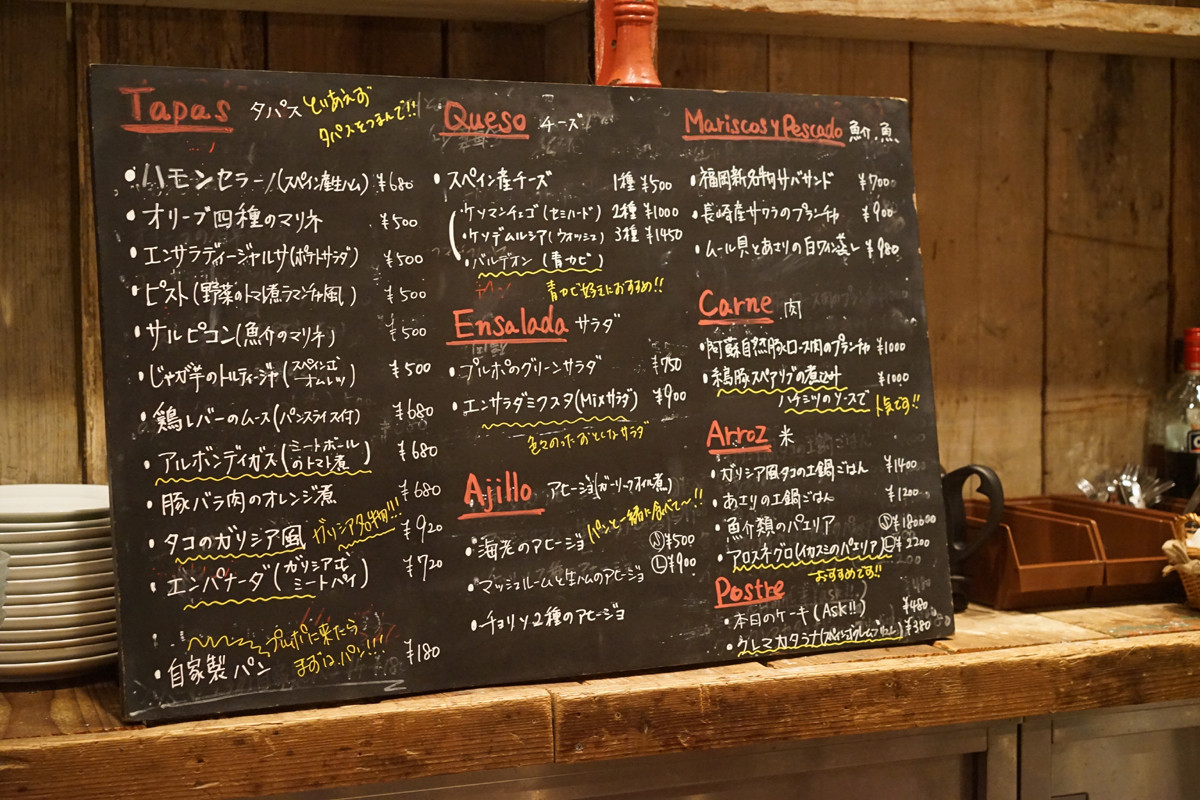 Tapas タパス とりあえず
タパスをつまんで!!
・ハモンセラーノ(スペイン産生ハム) ¥680
・オリーブ四種のマリネ ¥500
・エンサラディージャルサ(ポテトサラダ) ¥500
・ピスト(野菜のトマト煮ラマンチャ風) ¥500
・サルピコン(魚介のマリネ) ¥500
・じゃが芋のトルティージャ(スペイン式オムレツ) ¥500
・鶏レバーのムース(パンスライス付) ¥680
・アルボンディガス(ミートボールのトマト煮) ¥680
・豚バラ肉のオレンジ煮 ¥680
・タコのガリシア風 ガリシア名物!!! ¥920
・エンパナーダ(ガリシア式ミートパイ) ¥720
プルポに来たら
まずはパン!!!
・自家製パン ¥180
Queso チーズ
・スペイン産チーズ 1種 ¥500
・ケソマンチェゴ(セミハード) 2種 ¥1000
・ケソデムルシア(ウォッシュ) 3種 ¥1450
・バルデオン(青カビ)
青カビ好きにおすすめ!!
Ensalada サラダ
・プルポのグリーンサラダ ¥750
・エンサラダミクスタ(Mixサラダ) ¥900
色々のったおとしなサラダ
Ajillo アヒージョ(ガーリックオイル煮)
パンと一緒に食べて〜!!
・海老のアヒージョ Ⓢ¥500
・マッシュルームと生ハムのアヒージョ Ⓛ¥900
・チョリソ2種のアヒージョ
Mariscos y Pescado 魚介、魚
・福岡新名物サバサンド ¥700
・長崎産サワラのプランチャ ¥900
・ムール貝とあさりの白ワイン蒸し ¥980
Carne 肉
・阿蘇自然豚ロース肉のプランチャ ¥1000
・糸島豚スペアリブの煮込み ¥1000
ハチミツのソースで 人気です!!
Arroz 米
・ガリシア風タコの土鍋ごはん ¥1400
・あさりの土鍋ごはん ¥1200
・魚介類のパエリア Ⓢ¥1800
・アロスネグロ(イカスミのパエリア) Ⓛ¥2200
おすすめです!!
Postre
・本日のケーキ(ASK!!) ¥480
・クレマカタラナ ¥380